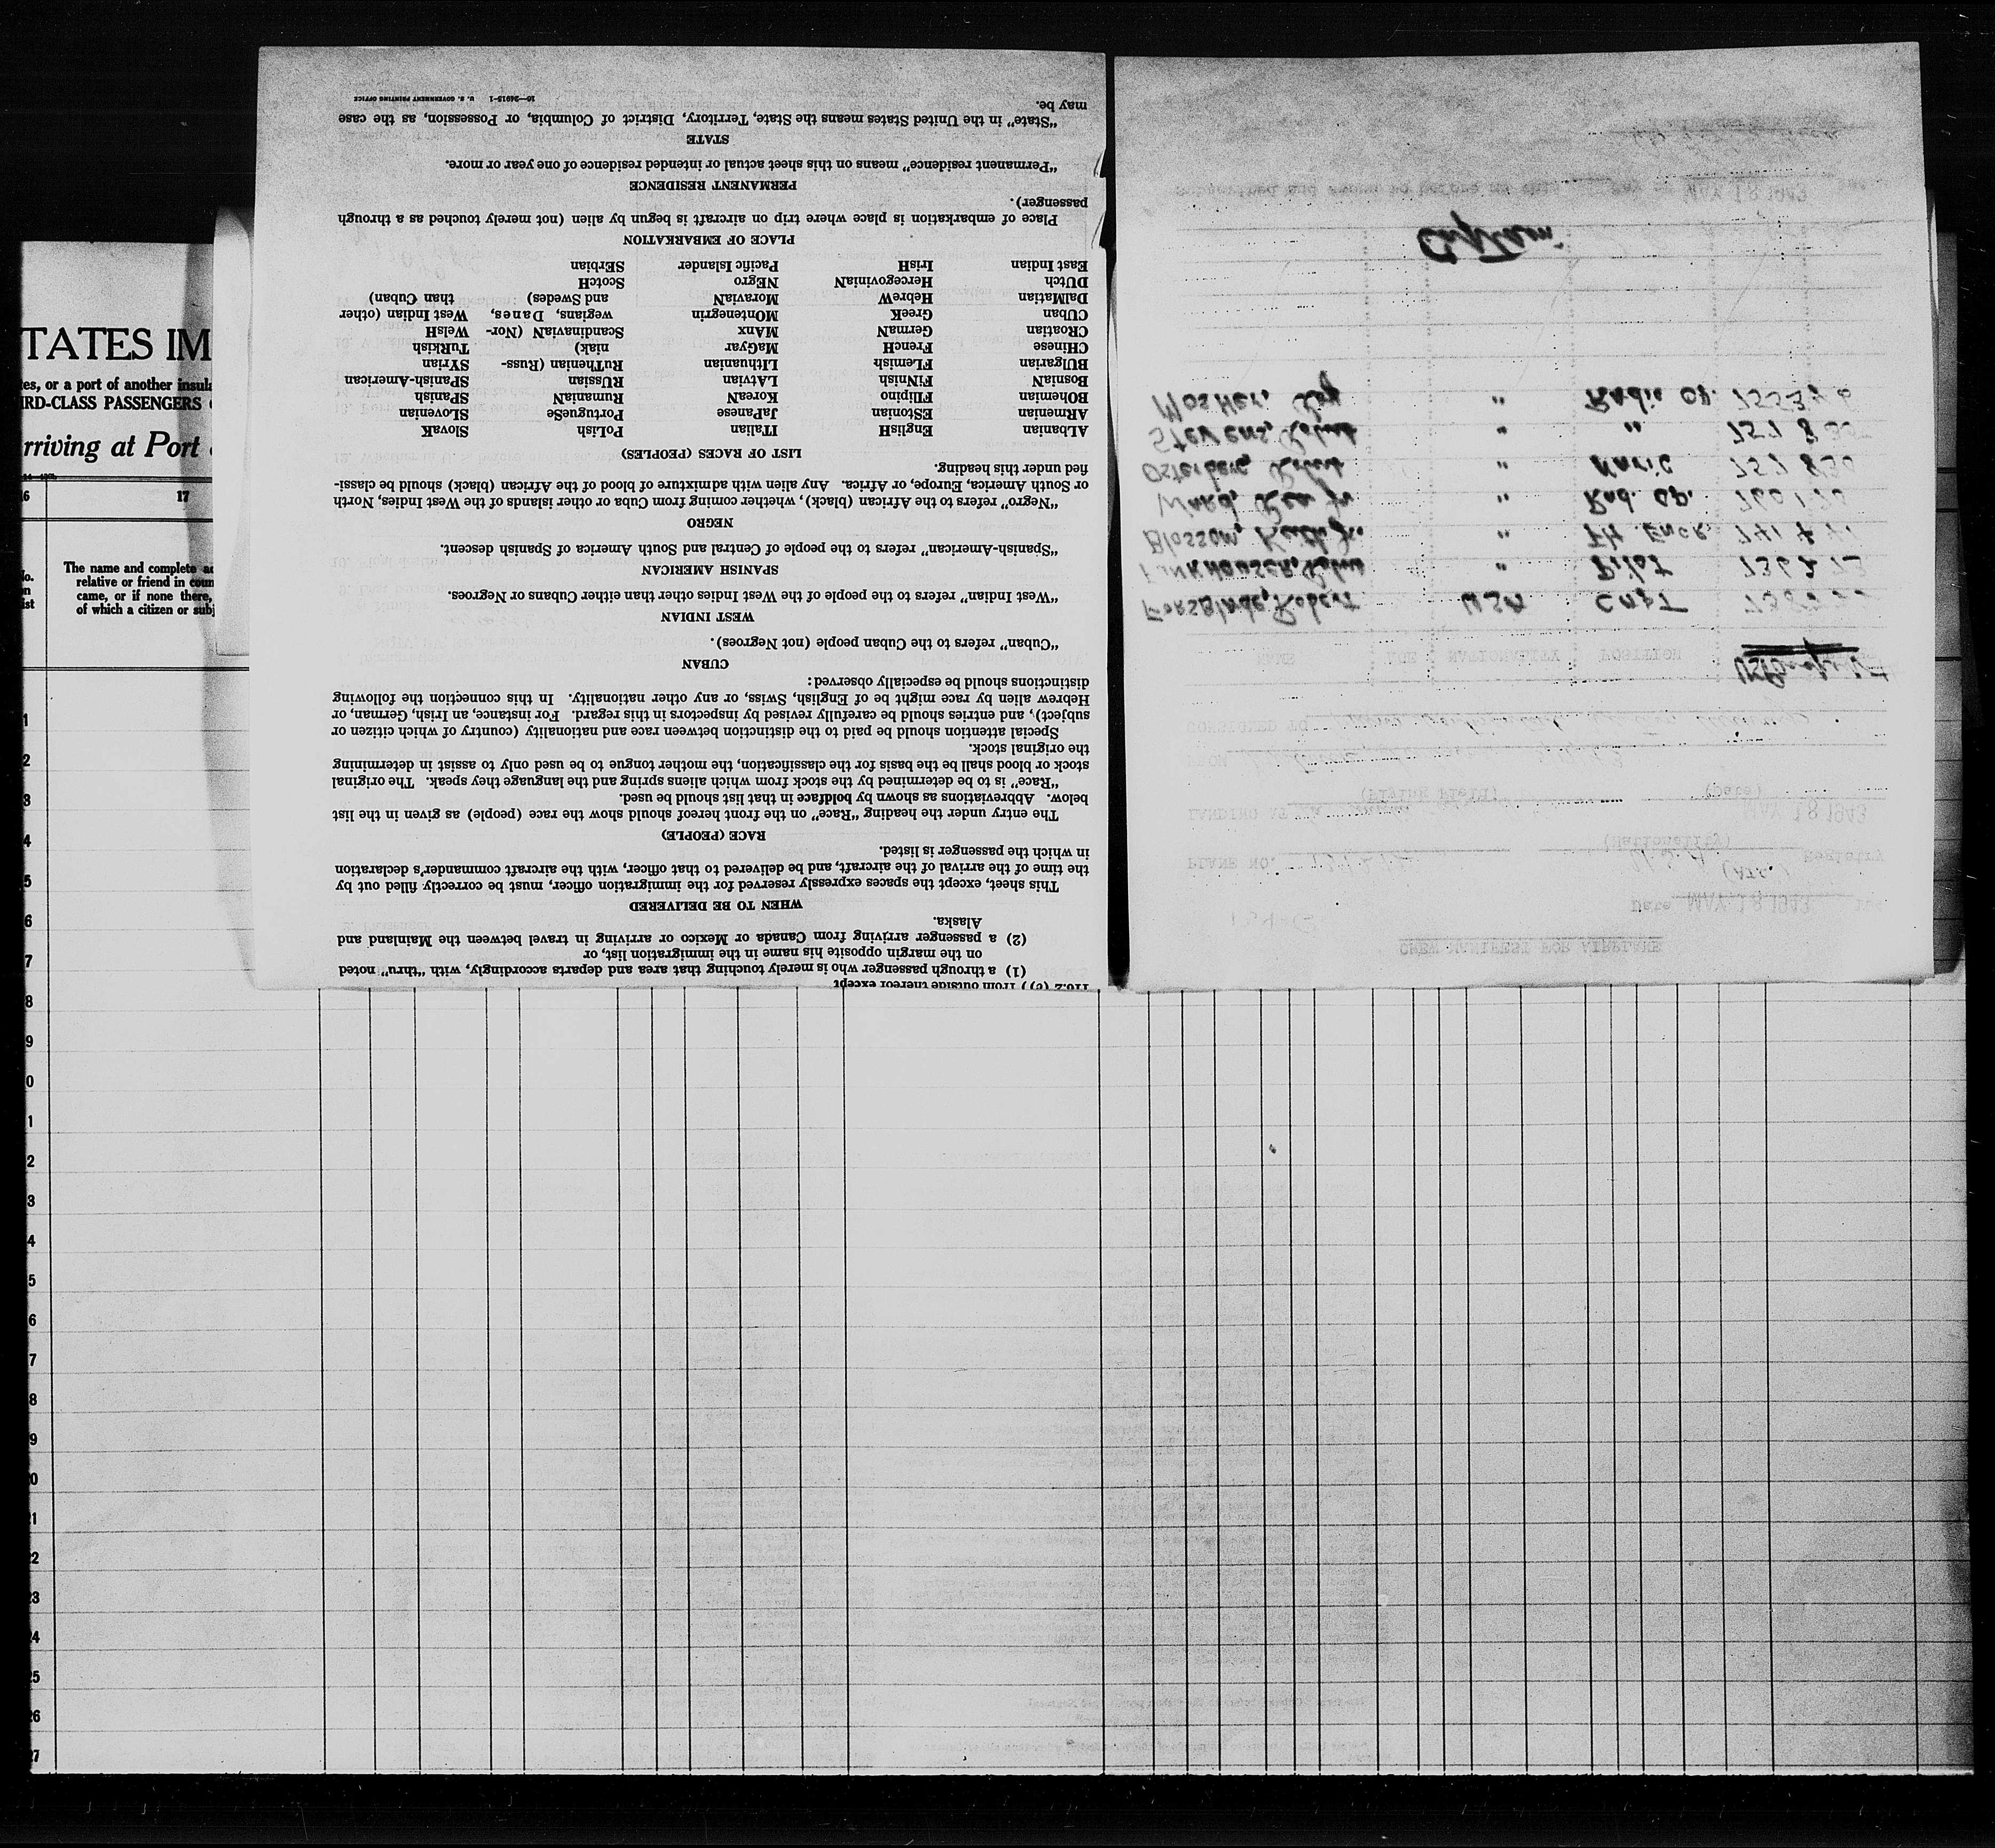 TATES IM
es, or a port of another insula
IRD-CLASS PASSENGERS
rriving at Port
6 17
The name and complete ad
relative or friend in coun
came, or if none there,
of which a citizen or subj
No.
on
ist
1
2
3
4
5
6
7
8
9
0
1
2
3
4
5
6
7
8
9
20
21
22
23
24
25
26
27
116.2 (e)) from outside thereof except
(1) a through passenger who is merely touching that area and departs accordingly, with “thru” noted
on the margin opposite his name in the immigration list, or
(2) a passenger arriving from Canada or Mexico or arriving in travel between the Mainland and
Alaska.
WHEN TO BE DELIVERED
This sheet, except the spaces expressly reserved for the immigration officer, must be correctly filled out by
the time of the arrival of the aircraft, and be delivered to that officer, with the aircraft commander’s declaration
in which the passenger is listed.
RACE (PEOPLE)
The entry under the heading “Race” on the front hereof should show the race (people) as given in the list
below. Abbreviations as shown by boldface in that list should be used.
“Race” is to be determined by the stock from which aliens spring and the language they speak. The original
stock or blood shall be the basis for the classification, the mother tongue to be used only to assist in determining
the original stock.
Special attention should be paid to the distinction between race and nationality (country of which citizen or
subject), and entries should be carefully revised by inspectors in this regard. For instance, an Irish, German, or
Hebrew alien by race might be of English, Swiss, or any other nationality. In this connection the following
distinctions should be especially observed:
CUBAN
“Cuban” refers to the Cuban people (not Negroes).
WEST INDIAN
“West Indian” refers to the people of the West Indies other than either Cubans or Negroes.
SPANISH AMERICAN
“Spanish-American” refers to the people of Central and South America of Spanish descent.
NEGRO
“Negro” refers to the African (black), whether coming from Cuba or other islands of the West Indies, North
or South America, Europe, or Africa. Any alien with admixture of blood of the African (black) should be classi-
fied under this heading.
LIST OF RACES (PEOPLES)
ALbanian EnglisH ITalian PoLish SlovaK
ARmenian EStonian JaPanese PortugueSe SLovenian
BOhemian FIlipino KoreaN RumaniaN SPanish
BosniaN FiNnish LAtvian RUssian SPanish-American
BUlgarian FLemish LIthuanian RuThenian (Russ- SYrian
CHinese FrencH MaGyar niak) TuRkish
CRoatian GermaN MAnx ScandinaviaN (Nor- WelsH
CUban GreeK MOntenegrin wegians, Danes, West Indian (other
DalMatian HebreW MoraviaN and Swedes) than Cuban)
DUtch HercegoviniaN NEgro ScotcH
East Indian IrisH Pacific Islander SErbian
PLACE OF EMBARKATION
Place of embarkation is place where trip on aircraft is begun by alien (not merely touched as a through
passenger).
PERMANENT RESIDENCE
“Permanent residence” means on this sheet actual or intended residence of one year or more.
STATE
“State” in the United States means the State, Territory, District of Columbia, or Possession, as the case
may be.
16—24915-1 U. S. GOVERNMENT PRINTING OFFICE
CREW MANIFEST FOR AIRPLANE
Date MAY 18 1943
PLANE NO. Registry
(Nationality)
LANDING AT MAY 18 1943
(Flying Field) (Date)
FROM
CONSIGNED TO
NAME AGE NATIONALITY POSITION
Forsblade, Robert USA CAPT
Funkhouser, Pilot
Blossom, Jr. " Flt. Engr.
Ward, Jr. " Rad. Op.
Osterberg, " Navig
Stevens, " "
Mosher, Roy " Radio Op.
Captain
Subscribed and sworn to before me this day of MAY 18 1943